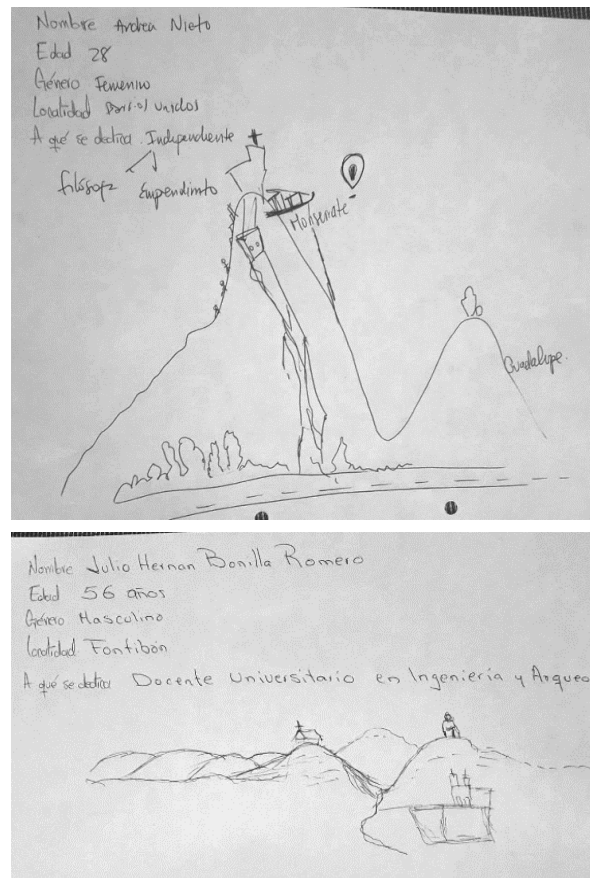 Nombre Andrea Nieto
Edad 28
Género Femenino
Localidad Barrios Unidos
A qué se dedica. Independiente
filósofa Emprendimto
Monserrate
Guadalupe.
Nombre Julio Hernan Bonilla Romero
Edad 56 años
Género Masculino
Localidad Fontibón
A qué se dedica Docente Universitario en Ingeniería y Arqueo